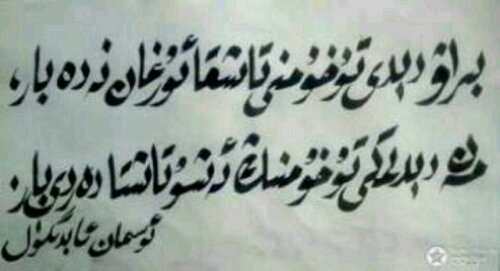 بىراۋ دېدى تۇخۇمنى تاشقا ئۇرغان نەدە بار،
مەن دېدىمكى تۇخۇمنىڭ ئەشۇ تاشتا دەردى بار.
ئوسمان